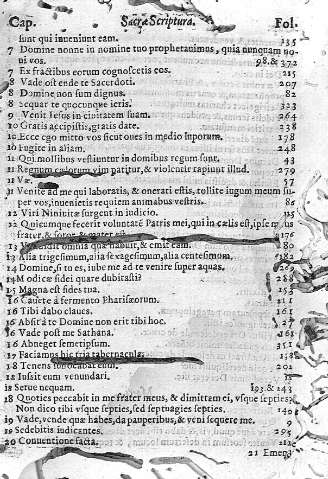 Cap. Sacræ Scripturæ. Fol.
sunt qui inveniunt eam. 135
7 Domine nonne in nomine tuo prophetavimus, quia nunquam no-
vi vos. 98. & 372
7 Ex fructibus eorum cognoscetis eos. 215
8 Vade ostende te Sacerdoti. 207
8 Domine non sum dignus. 82
8 Sequar te quocunque ieris. 323
9 Venit Iesus in civitatem suam. 264
10 Gratis accepistis, gratis date. 238
10 Ecce ego mitto vos sicut oves in medio luporum. 178
10 Fugite in aliam. 248
11 Qui mollibus vestiuntur in domibus regum sunt. 43
11 Regnum cælorum vim patitur, & violenti rapiunt illud. 279
11 Væ 57
11 Venite ad me qui laboratis, & onerati estis, tollite iugum meum su-
per vos, invenietis requiem animabus vestris. 82
12 Viri Ninivitæ surgent in iudicio. 115
12 Quicumque fecerit voluntatē Patris mei, qui in cælis est, ipse meus
frater, & soror, & mater est. 176
13 Vendidit omnia quæ habuit, & emit eam. 80
13 Alia trigesimum, alia sexagesimum, alia centesimum. 182
14 Domine, si tu es, iube me ad te venire super aquas. 262
14 Modicæ fidei quare dubitasti?
15 Magna est fides tua. 158
16 Cavete à fermento Pharisæorum. 211
16 Tibi dabo claves. 161
16 Absit à te Domine non erit tibi hoc. 27
16 Vade post me Sathana. 267
16 Abneget semetipsum. 351
17 Faciamus hic tria tabernacula.
18 Tenens suffocabat eum. 202
18 Iussit eum venundari.
18 Serve nequam. 193 & 243
18 Quoties peccabit in me frater meus, & dimittam ei, vsque septies;
Non dico tibi vsque septies, sed septuagies septies. 140
19 Vade, vende quæ habes, da pauperibus, & veni sequere me.
19 Sedebitis iudicantes. 295
20 Conventione facta.
21 Emens